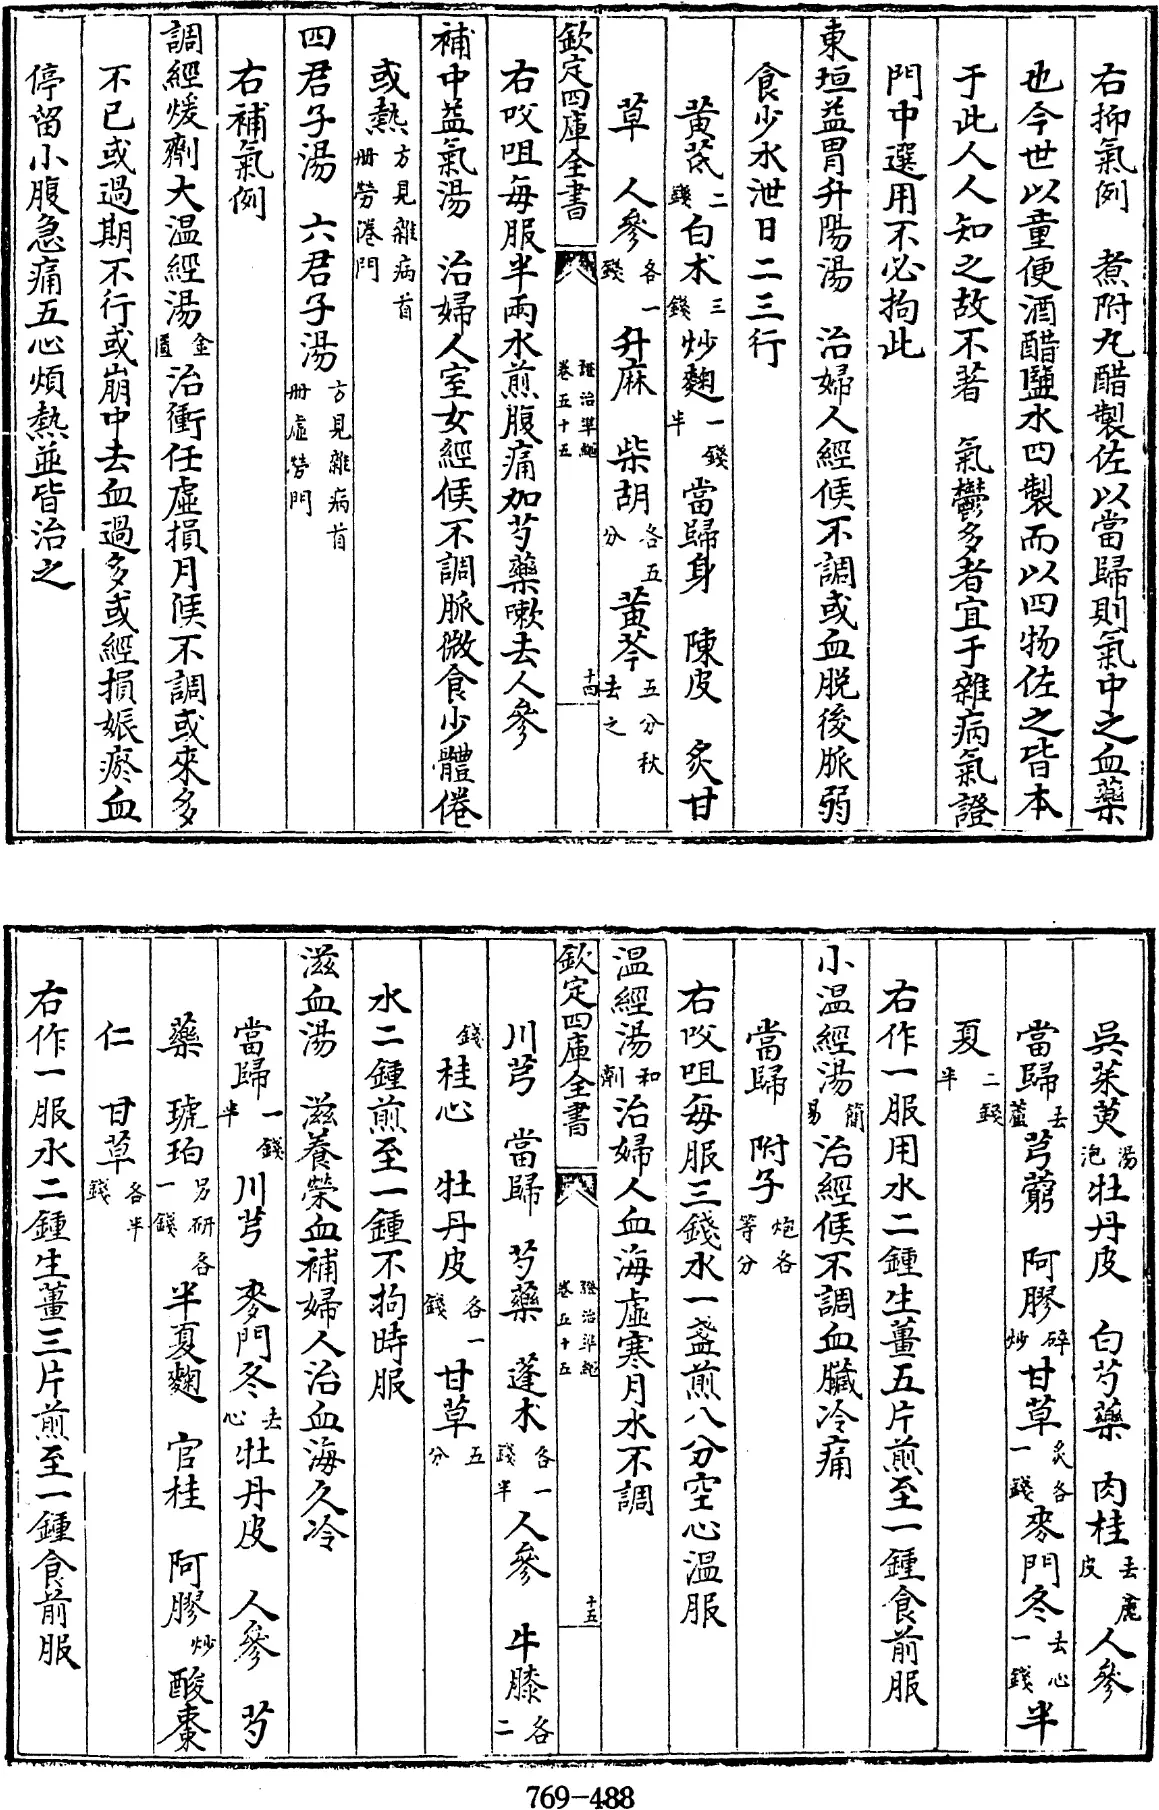 右抑氣例　煮附丸醋製佐以當歸則氣中之血藥
也今世以童便酒醋鹽水四製而以四物佐之皆本
于此人人知之故不著　氣鬱多者宜于雜病氣證
門中選用不必拘此
東垣益胃升陽湯　治婦人經候不調或血脱後脈弱
食少水泄日二三行
黄芪二錢　白术三錢　炒麴一錢半　當歸身　陳皮　炙甘
草　人參各一錢　升麻　柴胡各五分　黄芩五分秋去之
欽定四庫全書　證治準繩卷五十五　十四
右㕮咀每服半兩水煎腹痛加芍藥嗽去人參
補中益氣湯　治婦人室女經候不調脈微食少體倦
或熱方見雜病首冊勞倦門
四君子湯　六君子湯方見雜病首冊虛勞門
右補氣例
調經煖劑大温經湯金匱治衝任虛損月候不調或來多
不已或過期不行或崩中去血過多或經損娠瘀血
停留小腹急痛五心煩熱並皆治之
吳茱萸湯泡　牡丹皮　白芍藥　肉桂去麄皮　人參
當歸去蘆　芎藭　阿膠碎炒　甘草炙各一錢　麥門冬去心一錢　半
夏二錢半
右作一服用水二鍾生薑五片煎至一鍾食前服
小温經湯簡易治經候不調血臟冷痛
當歸　附子炮各等分
右㕮咀每服三錢水一盞煎八分空心温服
温經湯和劑治婦人血海虛寒月水不調
欽定四庫全書　證治準繩卷五十五　十五
川芎　當歸　芍藥　蓬术各一錢半　人參　牛膝各二
錢　桂心　牡丹皮各一錢　甘草五分
水二鍾煎至一鍾不拘時服
滋血湯　滋養榮血補婦人治血海久冷
當歸一錢半　川芎　麥門冬去心　牡丹皮　人參　芍
藥　琥珀另研各一錢　半夏麴　官桂　阿膠炒　酸棗
仁　甘草各半錢
右作一服水二鍾生薑三片煎至一鍾食前服
769-488